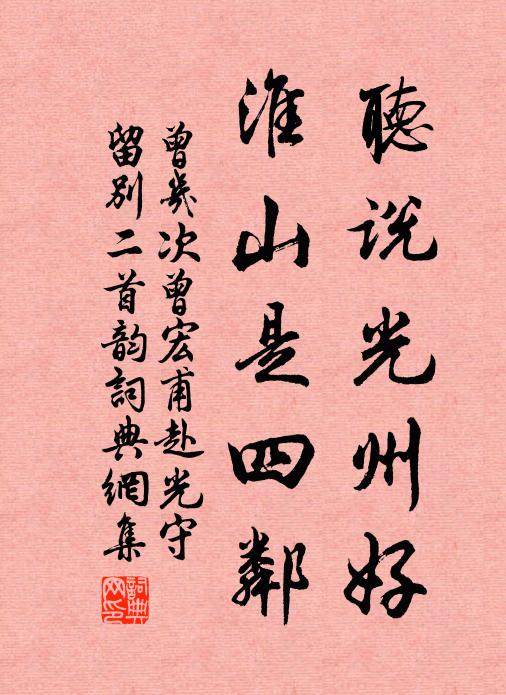 聽説光州好
淮山是四鄰
曾幾次曾宏甫赴光守
留别二首韵詞典網集
詞典
网印